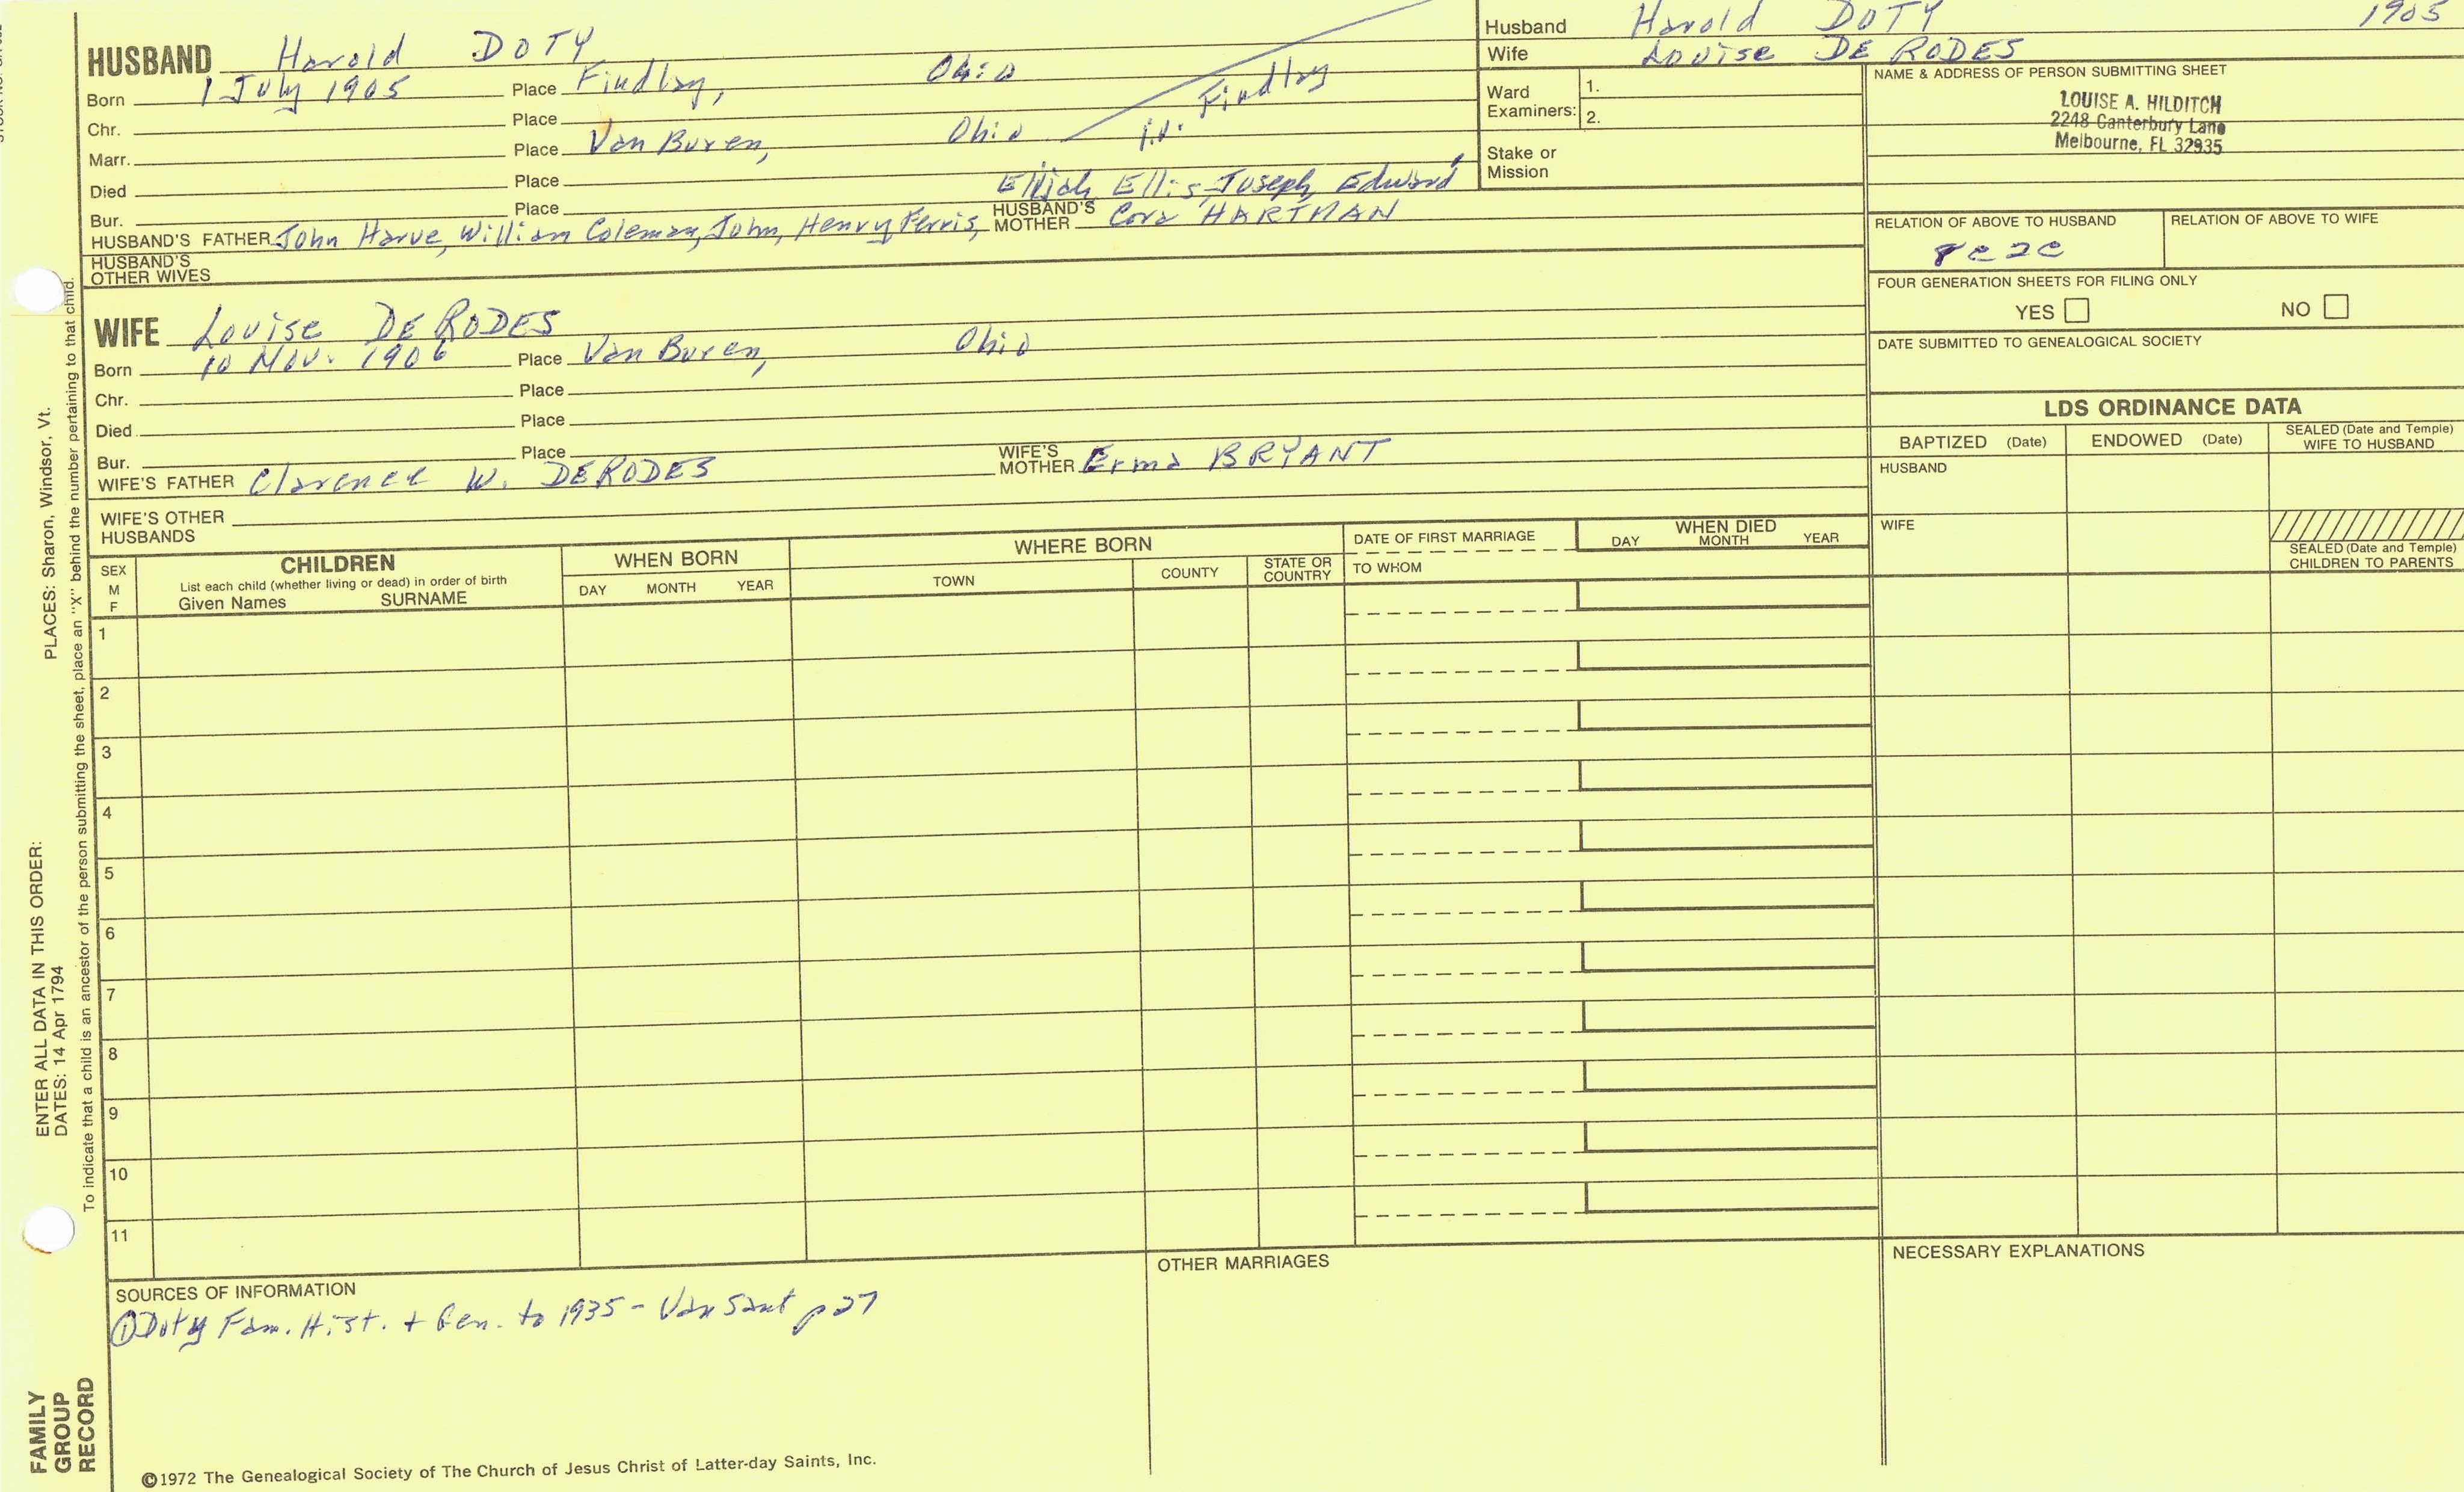 HUSBAND Harold DOTY
Born 1 July 1905 Place Findlay, Ohio
Chr. Place
Marr. Place Van Buren, Ohio Findlay
Died Place
Bur. Place
Ellis, Joseph, Edward
HUSBAND'S FATHER John Harve, William Coleman, John, Henry Ferris, HUSBAND'S MOTHER Cora HARTMAN
HUSBAND'S OTHER WIVES
WIFE Louise DE RODES
Born 10 Nov. 1906 Place Van Buren, Ohio
Chr. Place
Died Place
Bur. Place
WIFE'S FATHER Clarence W. DERODES WIFE'S MOTHER Erma BRYANT
WIFE'S OTHER HUSBANDS
Husband Harold DOTY 1905
Wife Louise DE RODES
Ward Examiners: 1.
2.
Stake or Mission
NAME & ADDRESS OF PERSON SUBMITTING SHEET
LOUISE A. HILDITCH
2248 Canterbury Lane
Melbourne, FL 32935
RELATION OF ABOVE TO HUSBAND RELATION OF ABOVE TO WIFE
FOUR GENERATION SHEETS FOR FILING ONLY
YES NO
DATE SUBMITTED TO GENEALOGICAL SOCIETY
LDS ORDINANCE DATA
BAPTIZED (Date) ENDOWED (Date) SEALED (Date and Temple) WIFE TO HUSBAND
HUSBAND
WIFE
SEALED (Date and Temple) CHILDREN TO PARENTS
SEX M F
CHILDREN
List each child (whether living or dead) in order of birth
Given Names SURNAME
WHEN BORN
DAY MONTH YEAR
WHERE BORN
TOWN COUNTY STATE OR COUNTRY
DATE OF FIRST MARRIAGE
TO WHOM
WHEN DIED
DAY MONTH YEAR
1
2
3
4
5
6
7
8
9
10
11
SOURCES OF INFORMATION
① Doty Fam. Hist. + Gen. to 1935 - Van Sant p 27
OTHER MARRIAGES
NECESSARY EXPLANATIONS
©1972 The Genealogical Society of The Church of Jesus Christ of Latter-day Saints, Inc.
FAMILY GROUP RECORD
ENTER ALL DATA IN THIS ORDER:
DATES: 14 Apr 1794
PLACES: Sharon, Windsor, Vt.
To indicate that a child is an ancestor of the person submitting the sheet, place an "X" behind the number pertaining to that child.